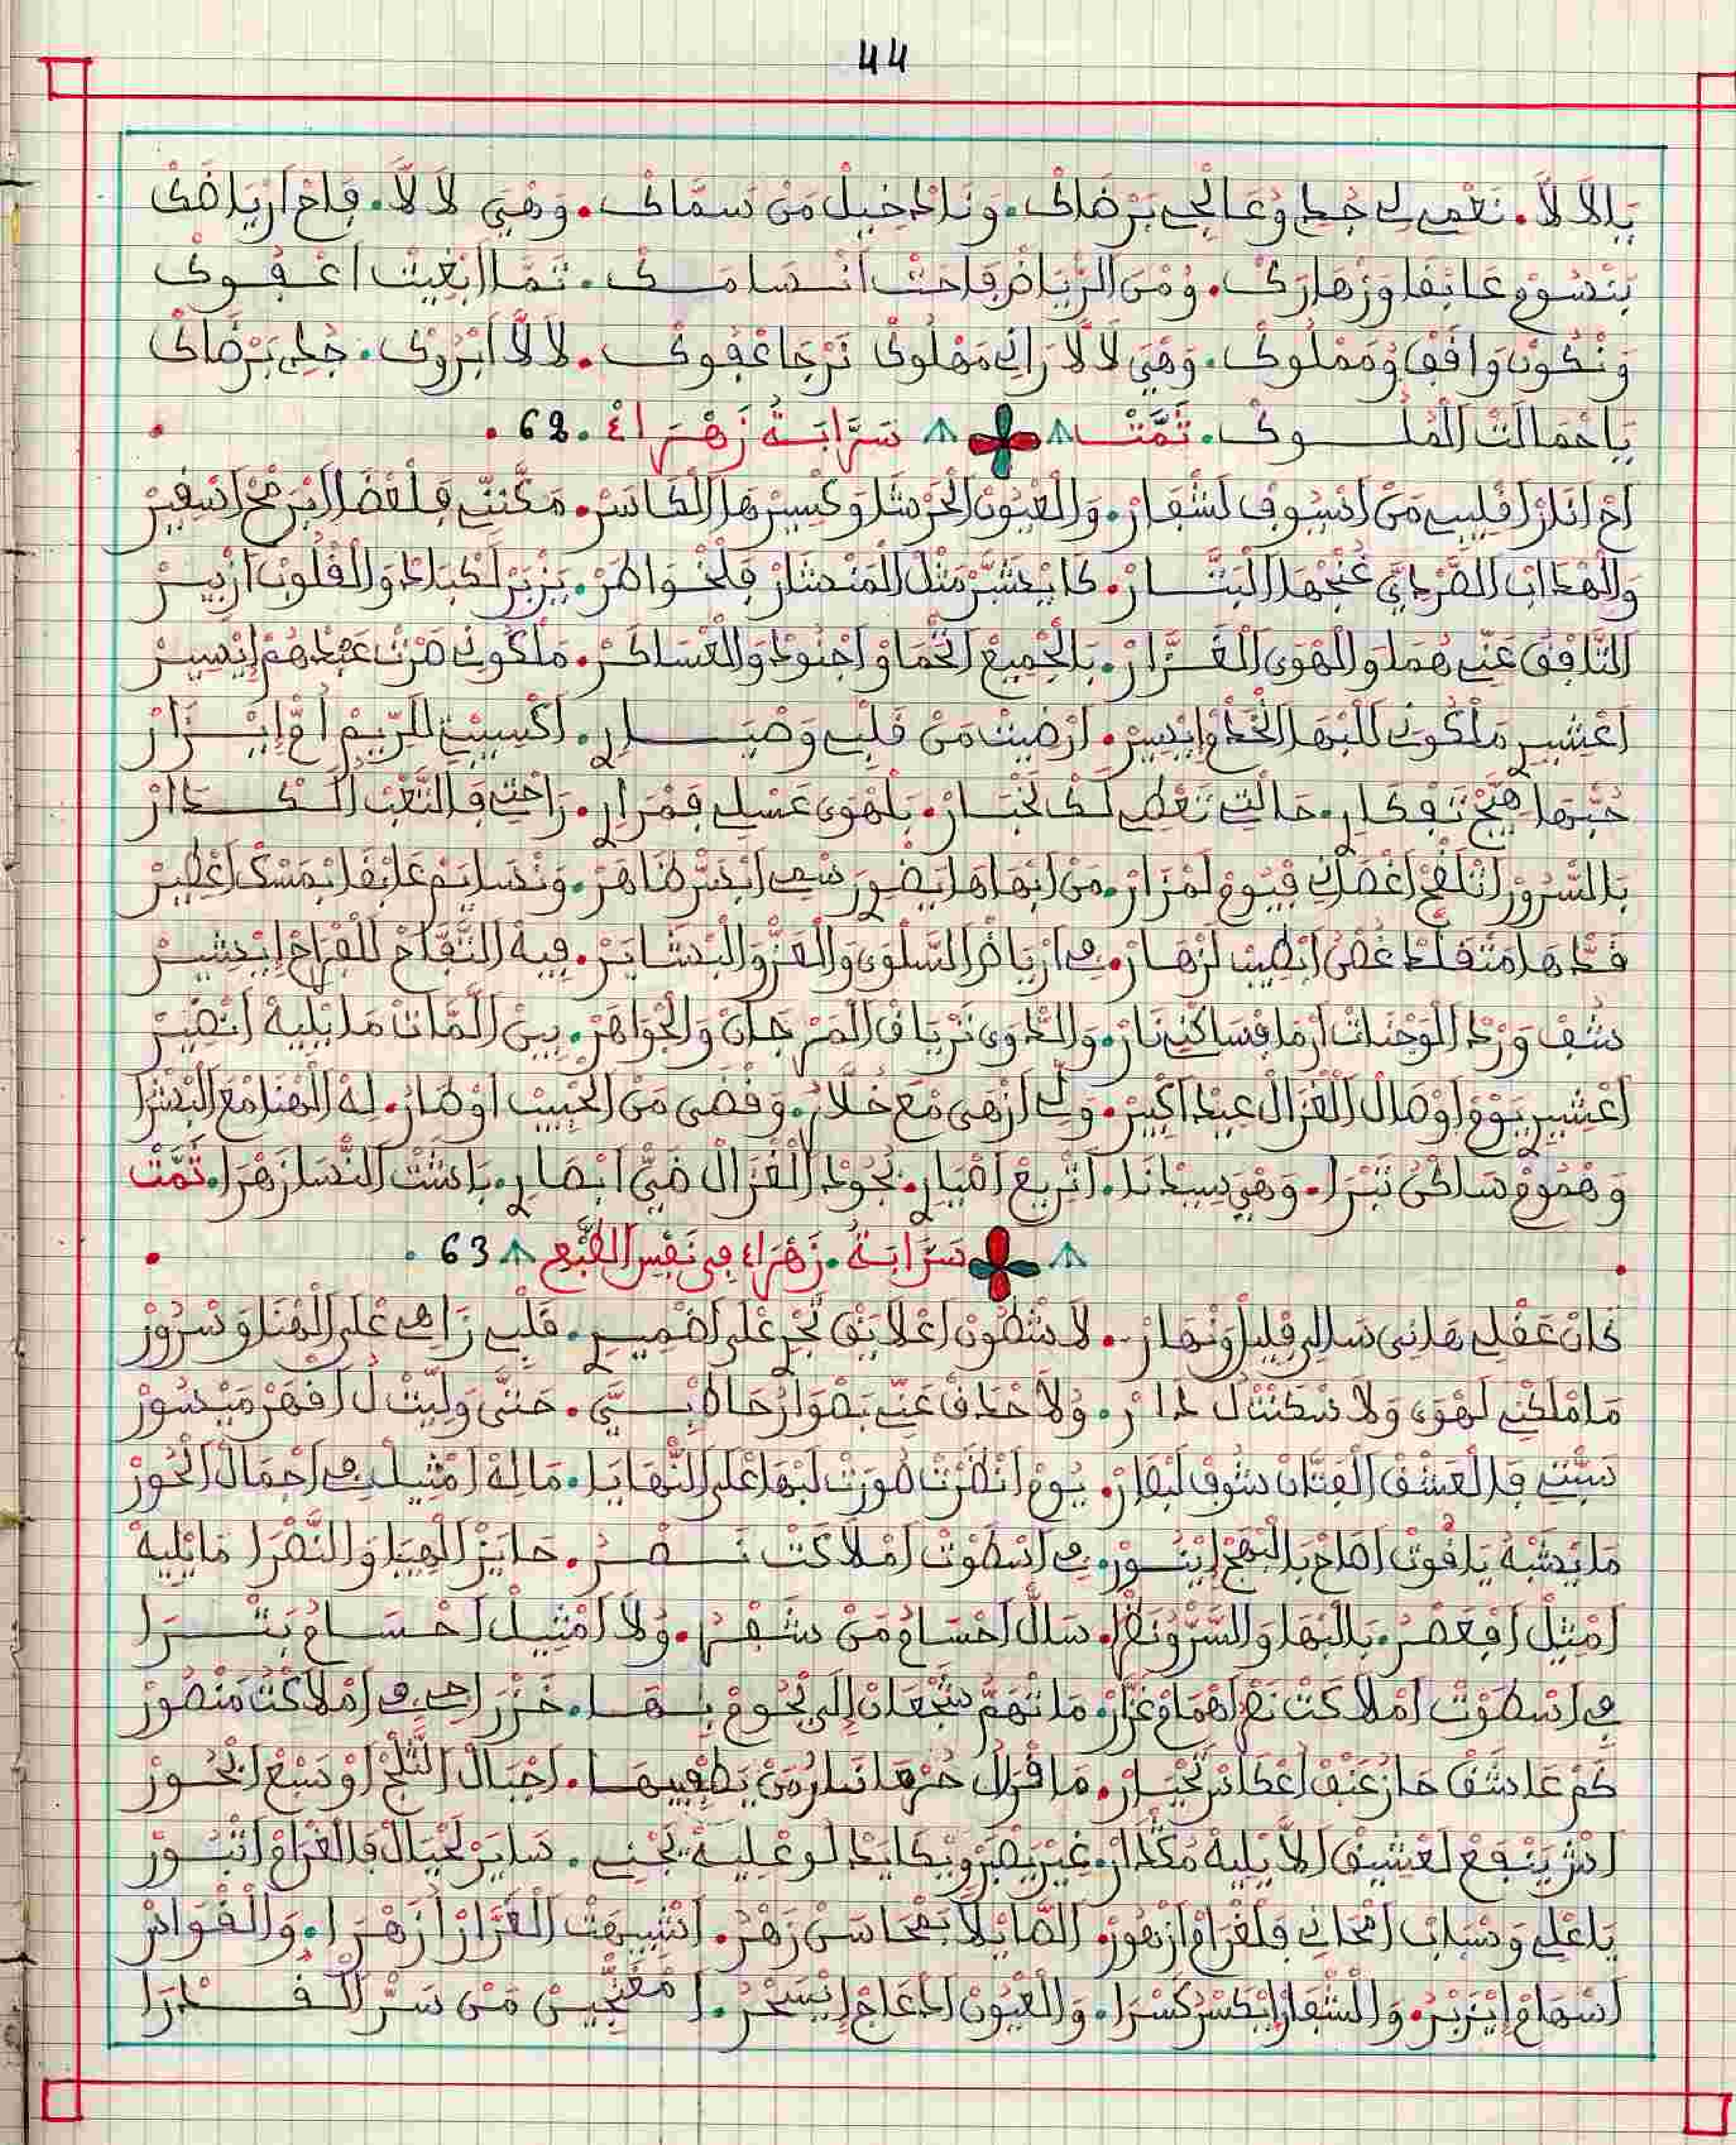 44
يالالا. نعمي لي جد وعالجي برضاك. وناد خيل من سماك. وهي لالا. فاح ارياضك
بنسوم عابقا وزهارك. ومن الرياض فاحت انسامك. تما ابغيت اعفوك
ونكون وافق ومملوك. وهي لالا راني مهلوك نرجا عفوك. لالا ابروك. جد برضاك
يا حمالت الملوك. تمت سرابة زهراء. 62.
اح اناز اقليب من اسيوف لشفار. والعيون الحرشا وكسيرها الكاسر. مكنت فلعضا ابرمح اسفير
والهداب الصردي غنجها البتار. كايعشر مثل المنشار فلخواطر. يزبر لكباد والقلوب ازبير
التافق عني هما والهوى الغزار. بالجميع الحما واجنود والعساكر. ملكوني صرت عبدهم ايسير
اعشير ملكوني البها الخد وايسير. ارضيت من قلب وصبار. اكسيبت الريم ام ايزار
حبها هيج تفكار. حالتي تعطي لك لخبار. بالهوى عسلي فمرار. راحتي فالتعب الكدار
بالسرور انلقح اغصان فيوم لمزار. من ابهاها ايضور شمس ابسر ظاهر. ونسايم عابقا بمسك اعطير
قدها متقلد غصن ارطيب لزهار. في ارياض السلوى والعز والبشاير. فيه التفاح للفراح ايبشير
شف ورد الوجنات ارما فساكني نار. والدوى ترياق المرجان والجواهر. بين المات ما يليه انضير
اعشير يوم اوصال الغزال عيد اكبير. ولي ازهى مع خلار. وقضى من الحبيب اوطار. له الهنا مع البشرا
وهموم ساكن تبرا. وهي سيدنا. اتريع اصبار. بجود الغزال ضي ابصار. باشت النسا زهرا. تمت
سرابة. زهراء في نفس الطبع 63.
كان عقلي هاني سالي فليل ونهار. لا شطون اعلا يق تجر على اضمير. قلبي زاهي على الهنا وسرور
ما ملكني لهوى ولا سكنت ل دار. ولا حداق عني بصوار حاطبي. حتى وليت ل افهر ميسور
سبتي فالعشق الفتان شوف لبصار. يوم انظرت صورت لبها على النهايا. ماله امثيل في اجمال الحور
ما يشبه ياقوت اصاح بالبهج اينور. في اسطوت املاكت نصر. حايز الهيبا والنصرا ما يليه
امثيل افعصر. بالبها والسر ونظر. سال احسام من شفر. ولا امثيل احسام بتـــرا
في اسطوت املاكت نصر اهمام غزار. ما تهم شجعان الى يحوم بها. خزراجي في املاكت منصور
كم عاشق حاز عنف اعكاس تحيار. ما قزال حرها نار من يطفيها. اجبال الثلج او سبع ابحور
اش ينفع لعشيق الا يليه مكدار. غير يصبر ويكايد لوعليه يجني. ساير لحيال فالغرام اثبور
يا علي وسباب امحاني فلغرام ازهور. الصايلا بمحاسن زهر. اشبيهت الغزار ازهرا. والقواس
اسهام ايزبر. والشفار ايكسر كسرا. والعيون ادعاج ايسحر. امغنجين من سر القدرا